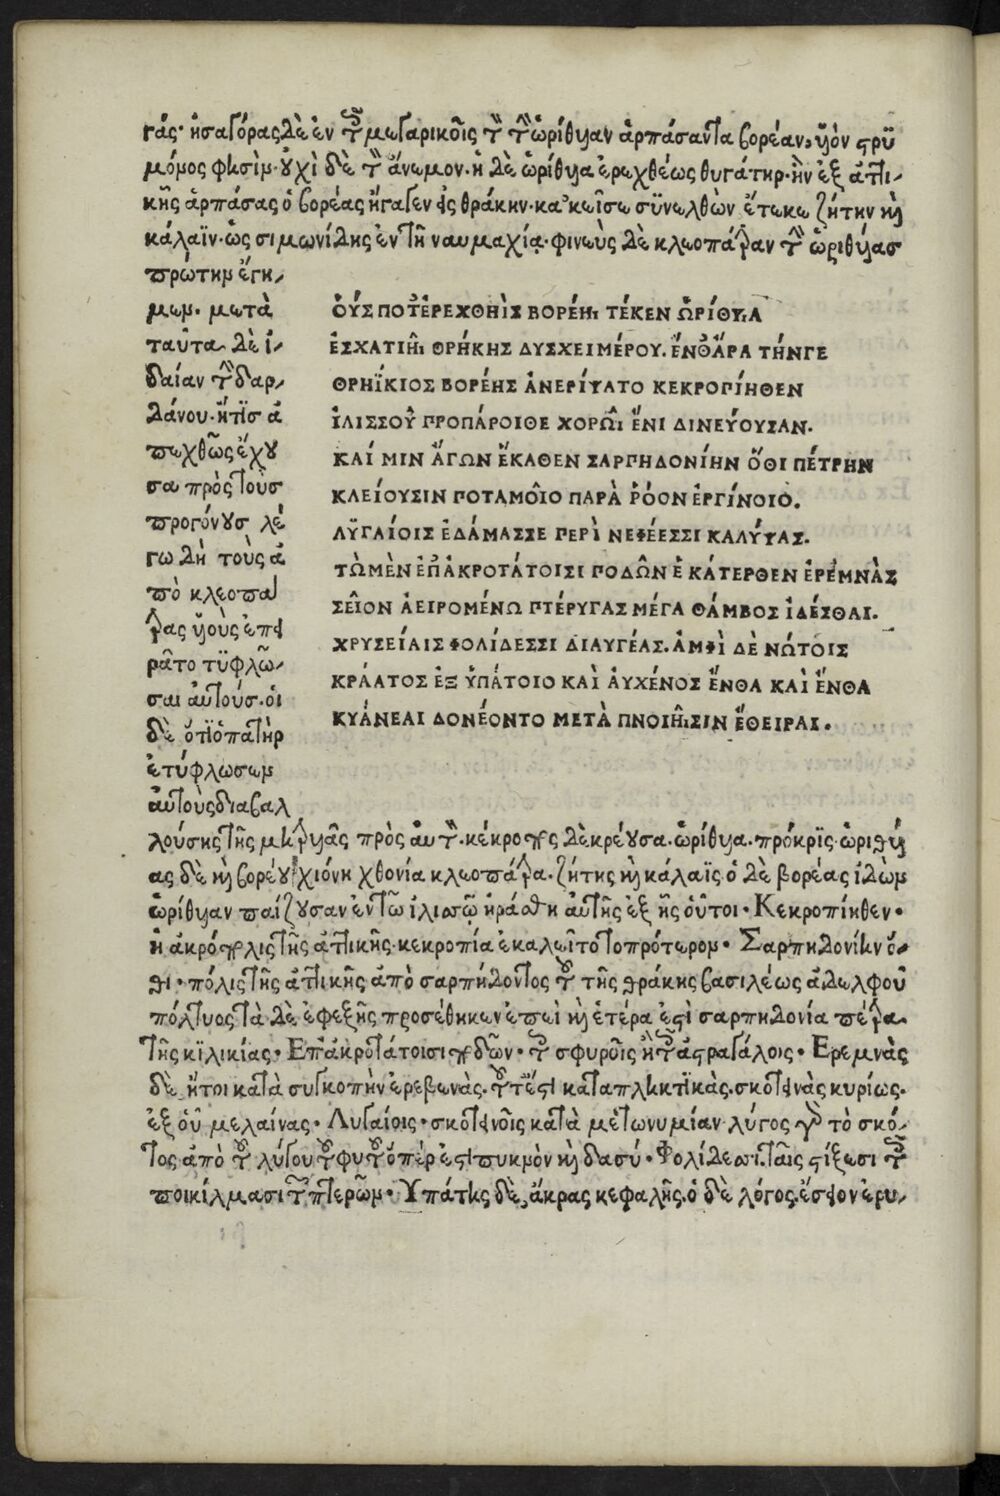 γάς· ἡσαγόρας δὲ ἐν τοῖς μεγαρικοῖς τὸν τὴν ὠρίθυιαν ἁρπάσαντα βορέαν, υἱὸν στρυ
μόνος φησὶν· οὐχὶ δὲ τὸν ἄνεμον. ἡ δὲ ὠρίθυια ἐρεχθέως θυγάτηρ. ἣν ἐξ ἀττι-
κῆς ἁρπάσας ὁ βορέας ἤγαγεν εἰς θράκην. κακεῖσε συνελθὼν ἔτεκε ζήτην καὶ
κάλαϊν. ὡς σιμωνίδης ἐν τῇ ναυμαχίᾳ. φινεὺς δὲ κλεοπάτραν τὴν ὠριθυίας
πρώτην ἔγη-
μεν. μετὰ
ταῦτα δὲ ἰ-
δαίαν τὴν δαρ-
δάνου. ἥτις ἀ
πεχθῶς ἔχου
σα πρὸς τοὺς
προγόνους λέ
γω δὴ τοὺς ἀ
πὸ κλεοπά
τρας υἱοὺς ἐπει
ρᾶτο τυφλῶ-
σαι αὐτούς. οἱ
δὲ ὅτι ὁ πατὴρ
ἐτύφλωσεν
αὐτοὺς διαβαλ
ΟὝΣ ΠΟΤ᾽ ἘΡΕΧΘΗῚΣ ΒΟΡΈΗΙ ΤΈΚΕΝ ὨΡΊΘΥΙΑ
ἘΣΧΑΤΙΗ͂Ι ΘΡΉΚΗΣ ΔΥΣΧΕΙΜΈΡΟΥ. ἜΝΘ᾽ ἌΡΑ ΤΉΝΓΕ
ΘΡΗΪ́ΚΙΟΣ ΒΟΡΈΗΣ ἈΝΕΡΊΨΑΤΟ ΚΕΚΡΟΠΊΗΘΕΝ
ἸΛΙΣΣΟΥ͂ ΠΡΟΠΆΡΟΙΘΕ ΧΟΡΩ͂Ι ἜΝΙ ΔΙΝΕΎΟΥΣΑΝ.
ΚΑΊ ΜΙΝ ἌΓΩΝ ἝΚΑΘΕΝ ΣΑΡΠΗΔΟΝΊΗΝ ὍΘΙ ΠΈΤΡΗΝ
ΚΛΕΊΟΥΣΙΝ ΠΟΤΑΜΟΙ͂Ο ΠΑΡᾺ ῬΌΟΝ ἘΡΓΊΝΟΙΟ.
ΛΥΓΑΊΟΙΣ ἘΔΆΜΑΣΣΕ ΠΕΡῚ ΝΕΦΈΕΣΣΙ ΚΑΛΎΨΑΣ.
ΤῺ ΜῈΝ ἘΠ᾽ ἈΚΡΟΤΆΤΟΙΣΙ ΠΟΔΩ͂Ν ἙΚΆΤΕΡΘΕΝ ἘΡΕΜΝᾺΣ
ΣΕΙ͂ΟΝ ἈΕΙΡΟΜΈΝΩ ΠΤΈΡΥΓΑΣ ΜΈΓΑ ΘΆΜΒΟΣ ἸΔΈΣΘΑΙ.
ΧΡΥΣΕΊΑΙΣ ΦΟΛΊΔΕΣΣΙ ΔΙΑΥΓΈΑΣ. ἈΜΦῚ ΔῈ ΝΏΤΟΙΣ
ΚΡΆΑΤΟΣ ἘΞ ὙΠΆΤΟΙΟ ΚΑῚ ἈΥΧΈΝΟΣ ἜΝΘΑ ΚΑῚ ἜΝΘΑ
ΚΥΆΝΕΑΙ ΔΟΝΈΟΝΤΟ ΜΕΤᾺ ΠΝΟΙΗ͂ΙΣΙΝ ἜΘΕΙΡΑΙ.
λούσης τῆς μητρυιᾶς πρὸς αὐτόν. κέκροπος δὲ κρέουσα. ὠρίθυια. πρόκρις. ὠριθυί
ας δὲ καὶ βορέου χιόνη χθονία κλεοπάτρα. ζήτης καὶ κάλαϊς. ὁ δὲ βορέας ἰδὼν
ὠρίθυιαν παίζουσαν ἐν τῷ ἰλισσῷ ἠράσθη αὐτῆς ἐξ ἧς οὗτοι. Κεκροπίηθεν.
ἡ ἀκρόπολις τῆς ἀττικῆς. κεκροπία ἐκαλεῖτο τοπρότερον. Σαρπηδονίην ὅ-
θι. πόλις τῆς ἀττικῆς ἀπὸ σαρπήδοντος τοῦ τῆς θράκης βασιλέως ἀδελφοῦ
πόλτυος τὰ δὲ ἐφεξῆς προσέθηκεν ἐπεὶ καὶ ἑτέρα ἐστὶ σαρπηδονία πέτρα.
τῆς κιλικίας. Ἐπ᾽ ἀκροτάτοισι ποδῶν. τοῖς σφυροῖς ἢ τοῖς ἀστραγάλοις. Ἐρεμνὰς
δὲ ἤτοι κατὰ συγκοπὴν ἐρεβωνάς. τουτέστι καταπληκτικὰς. σκοτεινὰς κυρίως.
ἐξ οὗ μελαίνας. Λυγαίοις. σκοτεινοῖς κατὰ μετωνυμίαν λύγος γὰρ τὸ σκό-
τος ἀπὸ τοῦ λύγου τοῦ φυτοῦ ὅπέρ ἐστι πυκνὸν καὶ δασύ. Φολίδεσσι. ταῖς στίξεσι τοῖς
ποικίλμασι τῶν πτερῶν. Ὑπάτης δὲ, ἄκρας κεφαλῆς. ὁ δὲ λόγος. ἔσειον ἐρυ-